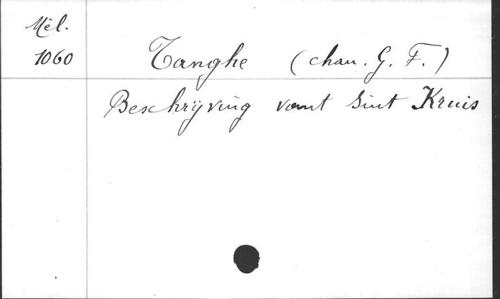 Mél.
1060 Tanghe (chan. G. F.)
Beschrijving vant Sint Kruis